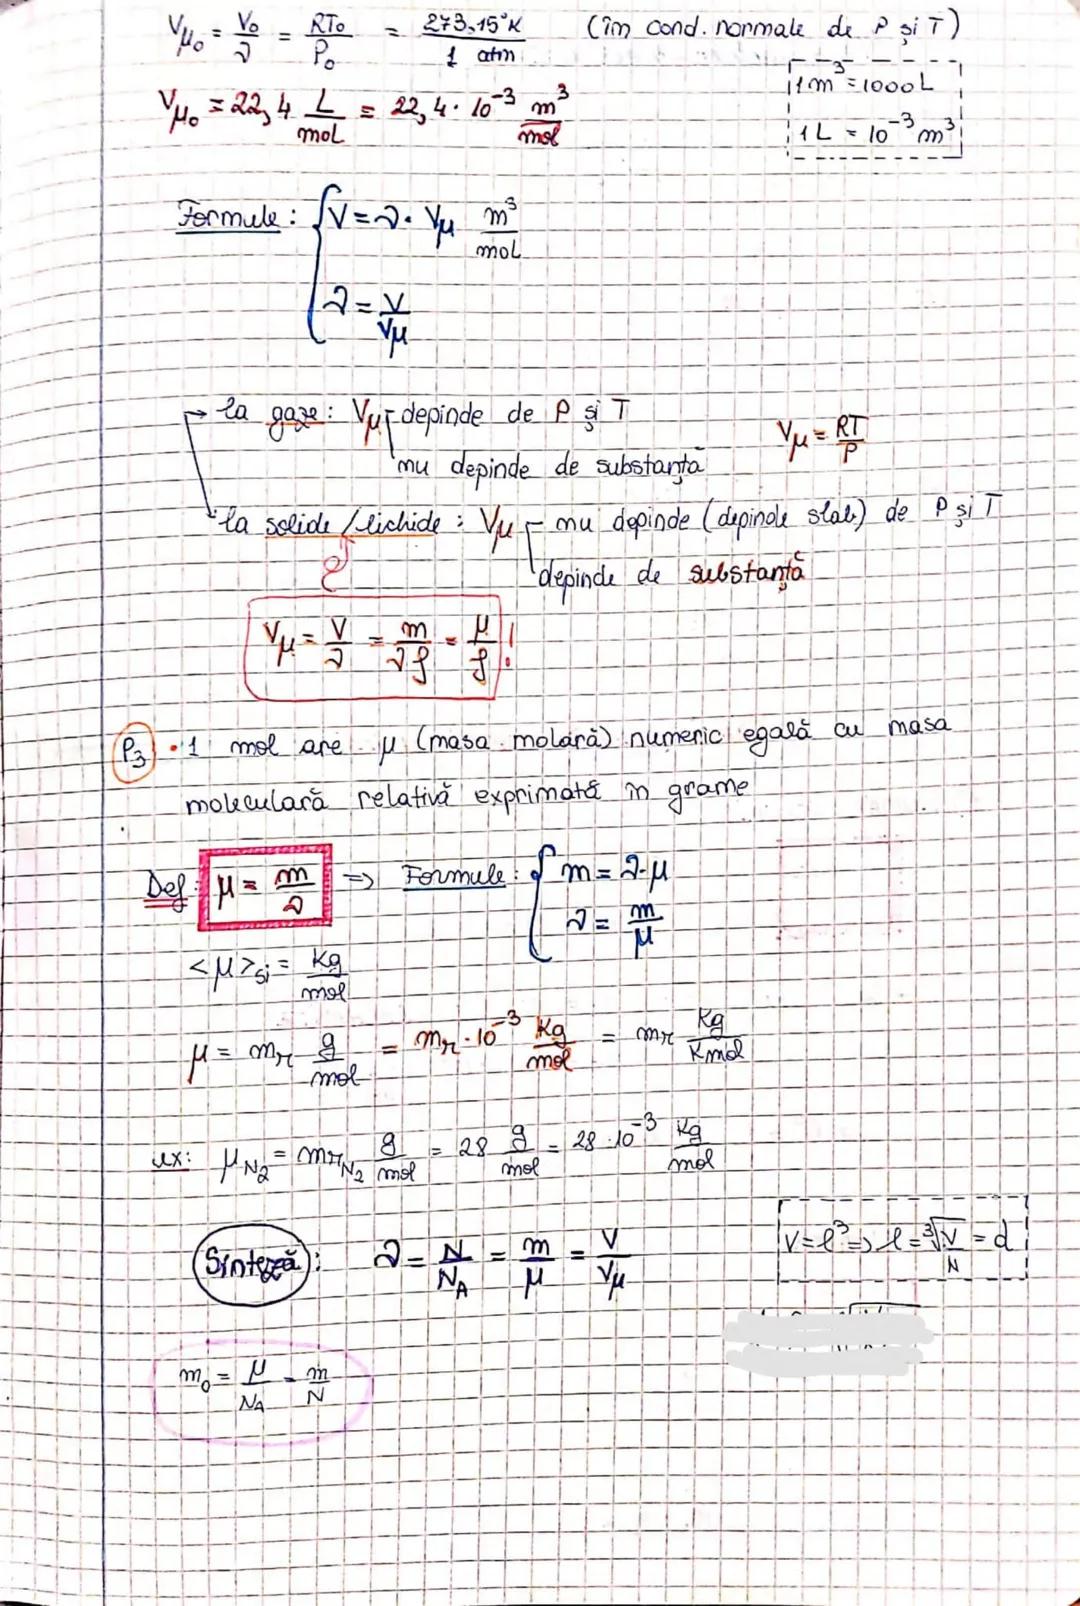 Vμ₀ = V₀/ν = RT₀/P₀ = 273,15°K / 1 atm (în cond. normale de P și T)
Vμ₀ = 22,4 L/mol = 22,4 · 10⁻³ m³/mol
1 m³ = 1000 L
1 L = 10⁻³ m³
Formule: { V = ν · Vμ m³/mol
ν = V/Vμ
la gaze: Vμ depinde de P și T
nu depinde de substanță
Vμ = RT/P
la solide / lichide: Vμ nu depinde (depinde slab) de P și T
depinde de substanță
Vμ = V/ν = m/νρ = μ/ρ !
P₃ • 1 mol are μ (masa molară) numeric egală cu masa
moleculară relativă exprimată în grame
Def: μ = m/ν => Formule: { m = ν·μ
ν = m/μ
<μ>SI = Kg/mol
μ = mr g/mol = mr · 10⁻³ Kg/mol = mr Kg/Kmol
ex: μN₂ = mrN₂ g/mol = 28 g/mol = 28 · 10⁻³ Kg/mol
Sinteză: ν = N/NA = m/μ = V/Vμ
V = l³ => l = ³√(V/N) = d
m₀ = μ/NA = m/N